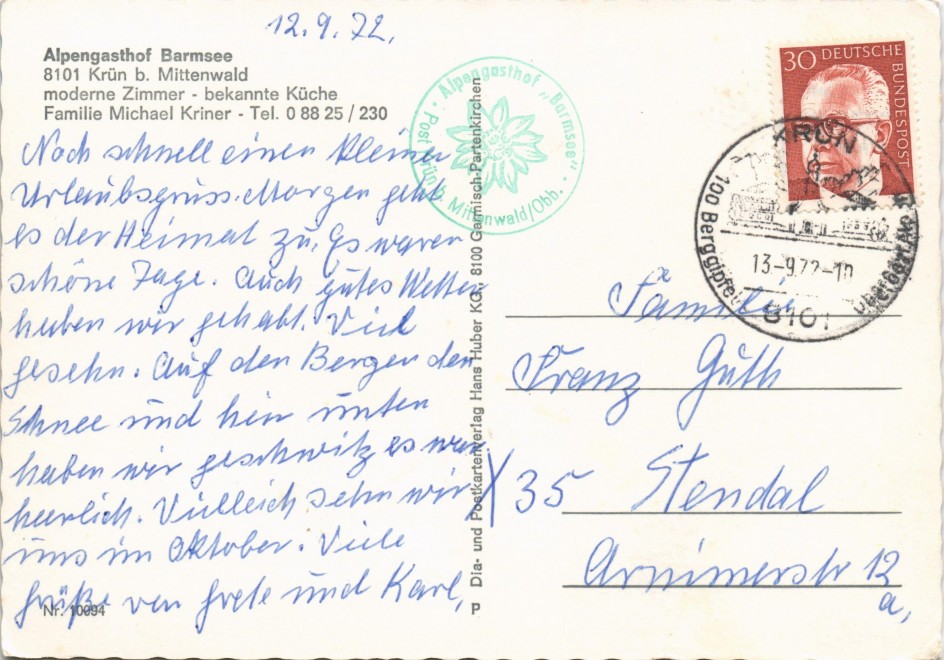 12.9.72.
Alpengasthof Barmsee
8101 Krün b. Mittenwald
moderne Zimmer - bekannte Küche
Familie Michael Kriner - Tel. 0 88 25 / 230
Noch schnell einen kleinen
Urlaubsgruss. Morgen geht
es der Heimat zu. Es waren
schöne Tage. Auch gutes Wetter
haben wir gehabt. Viel
gesehn. Auf den Bergen den
Schnee und hier unten
haben wir geschwitz es war
herrlich. Villeich sehn wir
uns im Oktober. Viele
Grüße von Grete und Karl,
Nr. 10094
Alpengasthof „Barmsee"
Post Krün Mittenwald/Obb.
Dia- und Postkartenverlag Hans Huber KG, 8100 Garmisch-Partenkirchen
P
30 DEUTSCHE BUNDESPOST
KRÜN
100 Berggipfel
13.-9.72-10
8101
Familie
Franz Guth
X 35 Stendal
Arnimerstr 12
a,